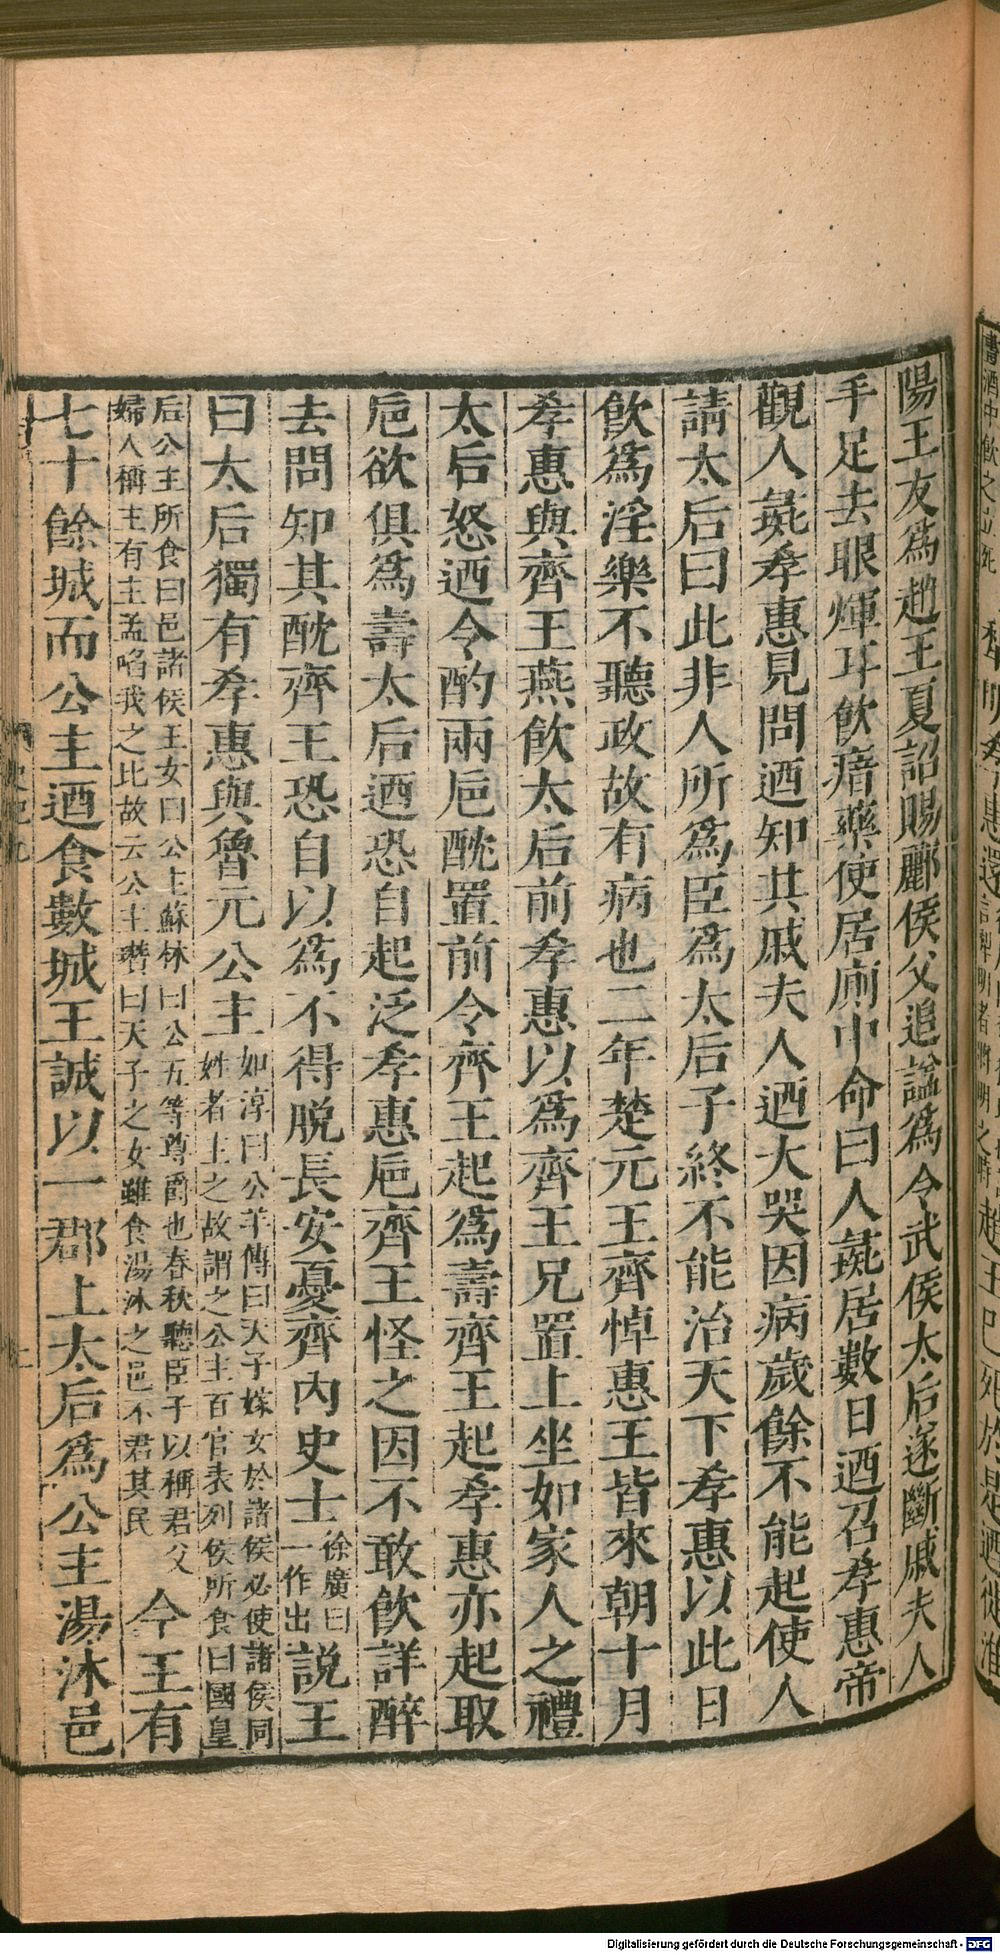 陽王友爲趙王夏詔賜酈侯父追謚爲令武侯太后遂斷戚夫人
手足去眼煇耳飲瘖藥使居廁中命曰人彘居數日迺召孝惠帝
觀人彘孝惠見問迺知其戚夫人迺大哭因病歲餘不能起使人
請太后曰此非人所爲臣爲太后子終不能治天下孝惠以此日
飲爲淫樂不聽政故有病也二年楚元王齊悼惠王皆來朝十月
孝惠與齊王燕飲太后前孝惠以爲齊王兄置上坐如家人之禮
太后怒迺令酌兩巵酖置前令齊王起爲壽齊王起孝惠亦起取
巵欲俱爲壽太后迺恐自起泛孝惠巵齊王怪之因不敢飲詳醉
去問知其酖齊王恐自以爲不得脱長安憂齊內史士徐廣曰一作出説王
曰太后獨有孝惠與魯元公主如淳曰公羊傳曰天子嫁女於諸侯必使諸侯同姓者主之故謂之公主百官表列侯所食曰國皇
后公主所食曰邑諸侯王女曰公主蘇林曰公五等尊爵也春秋聽臣子以稱君父婦人稱主有主孟啗我之比故云公主瓚曰天子之女雖食湯沐之邑不君其民今王有
七十餘城而公主迺食數城王誠以一郡上太后爲公主湯沐邑
Digitalisierung gefördert durch die Deutsche Forschungsgemeinschaft - DFG